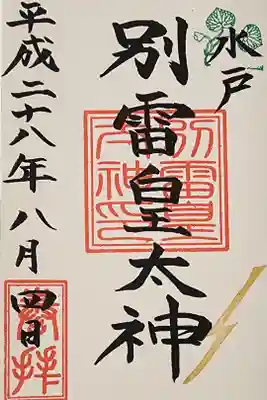 水戸
別雷皇太神
平成二十八年八月
四日
別雷皇太神印
奉拝